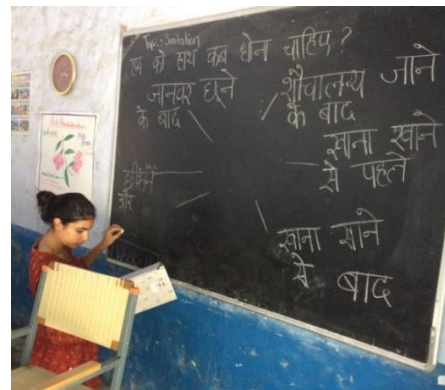 Topic: Sanitation
हम को हाथ कब धोना चाहिए?
जानवर छूने
के बाद
शौचालय जाने
के बाद
खाना खाने
से पहले
और
खाना खाने
से बाद